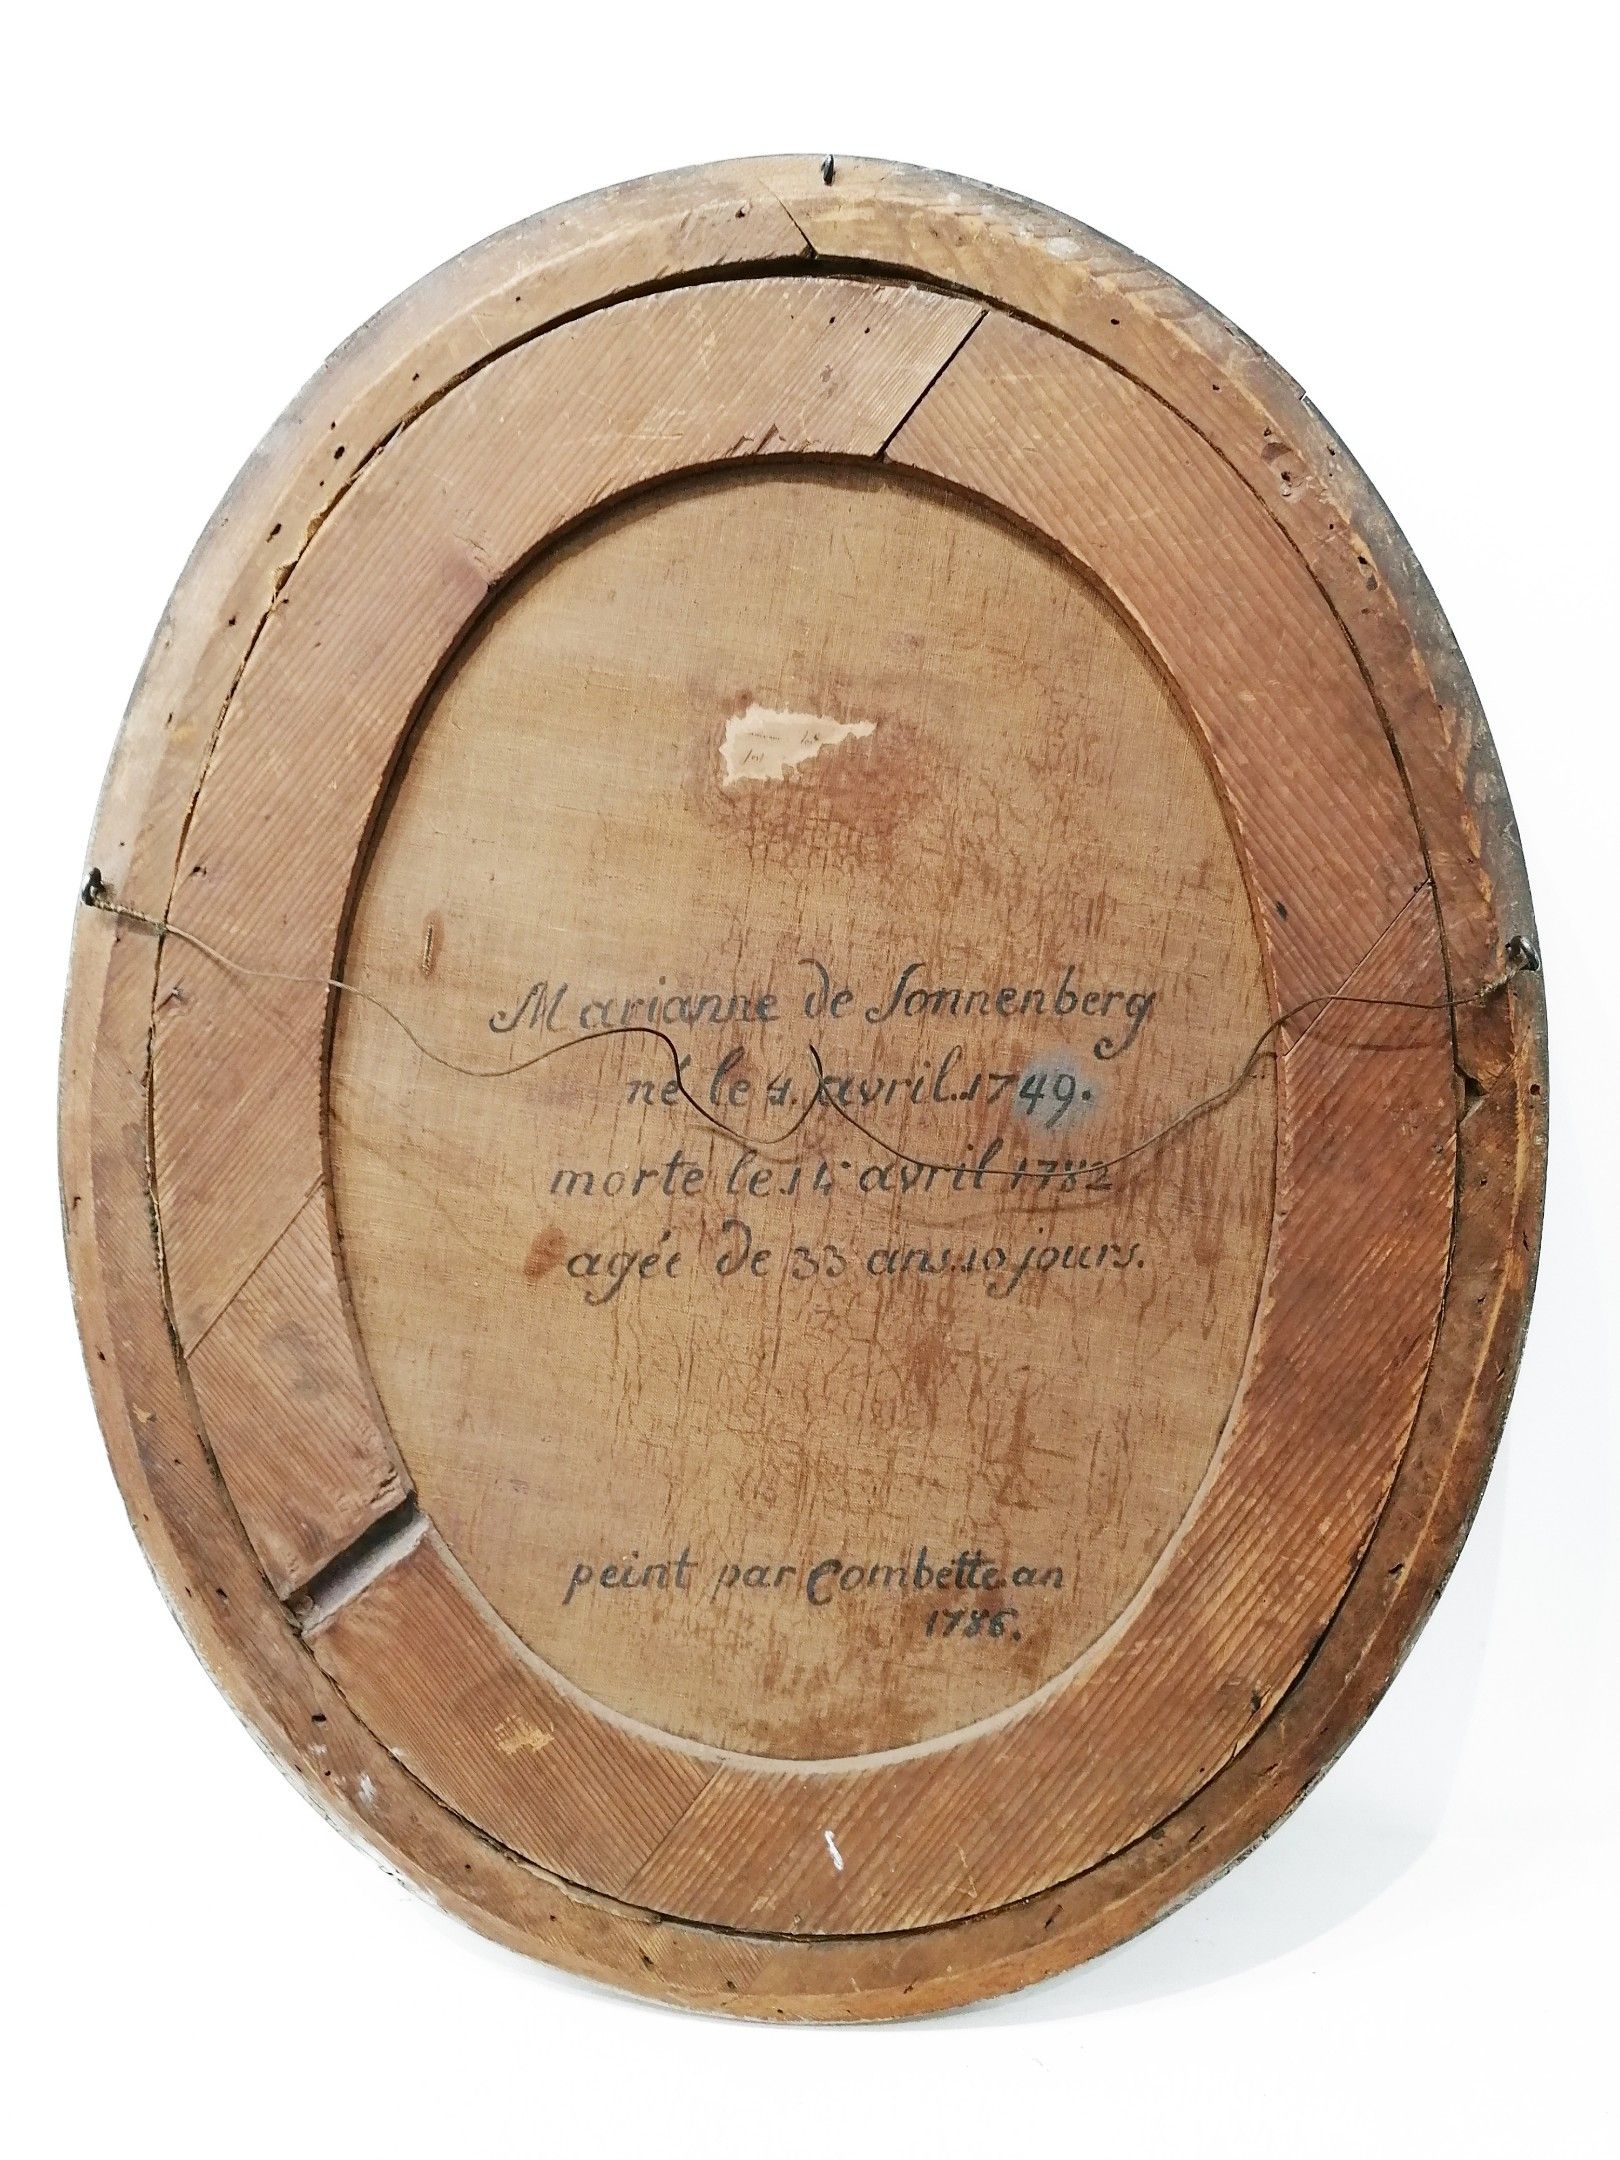 Marianne de Sonnenberg
né le 4. avril. 1749.
morte le 14. avril 1782
agée de 33 ans. 10 jours.
peint par Combette. an
1786.